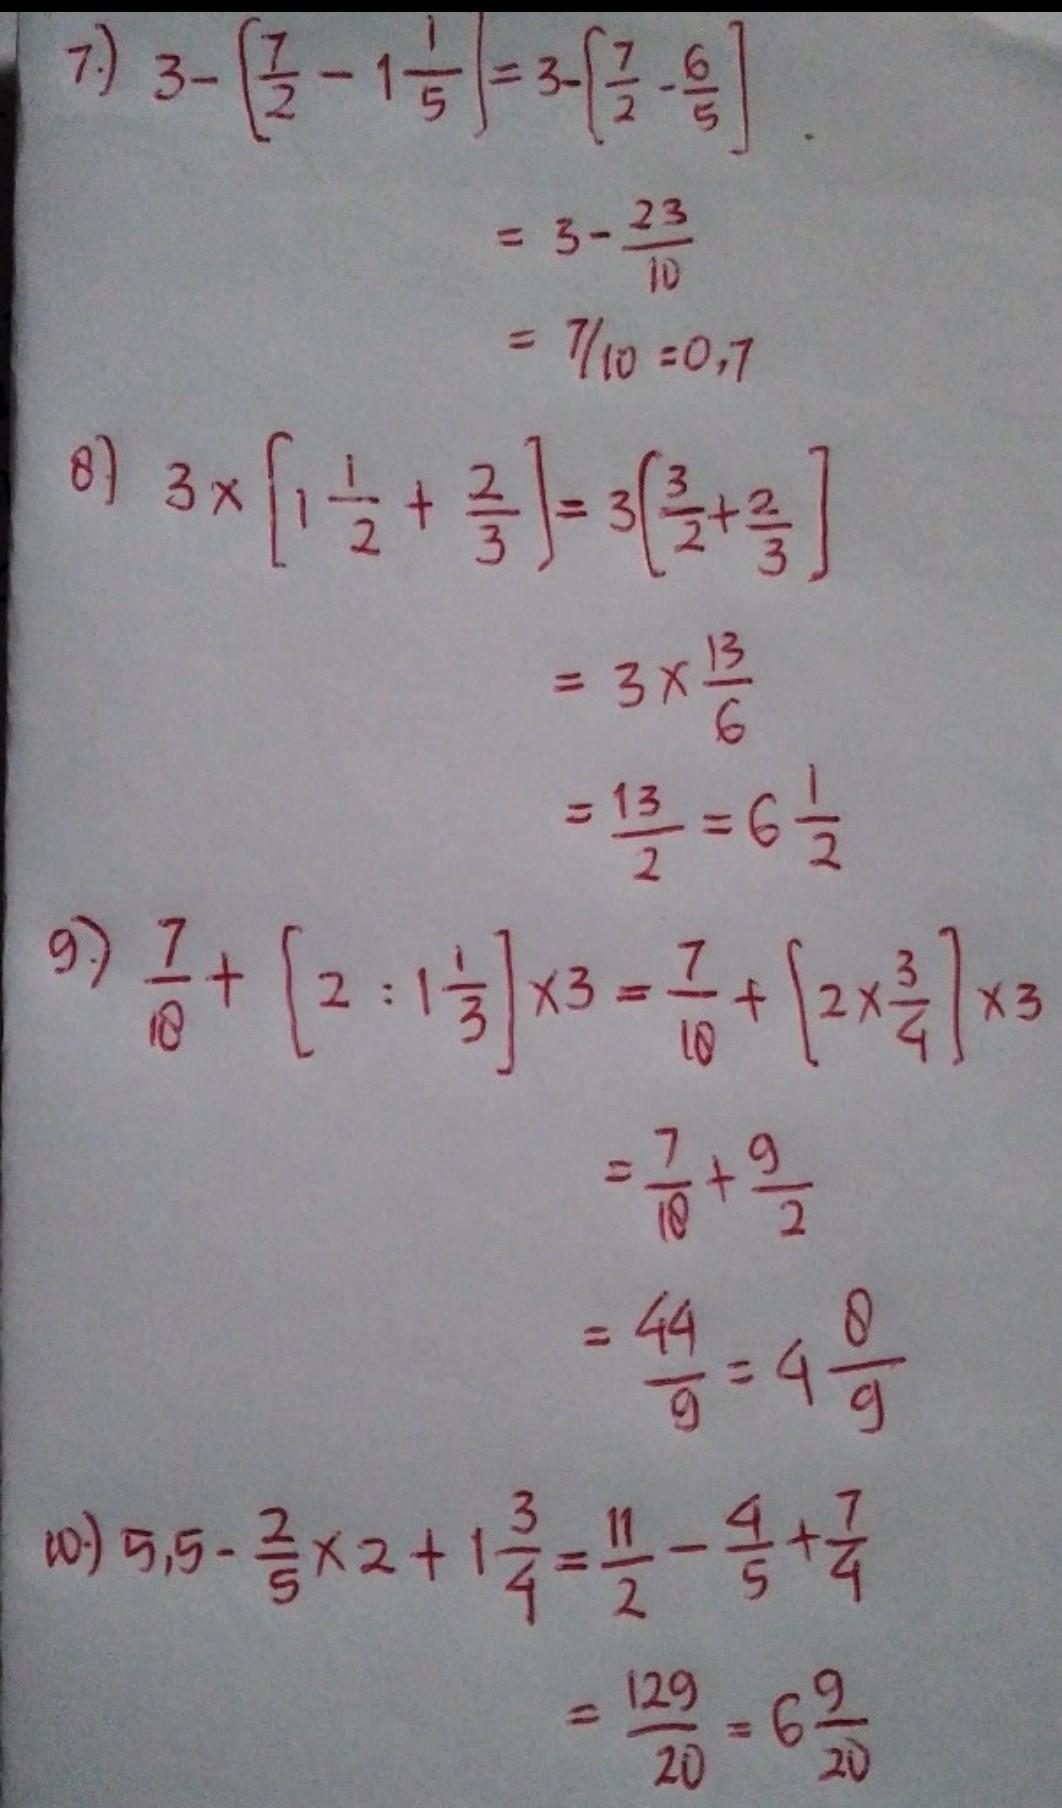 7.) 3 - [7/2 - 1 1/5] = 3 - [7/2 - 6/5]
= 3 - 23/10
= 7/10 = 0,7
8) 3 x [1 1/2 + 2/3] = 3[3/2 + 2/3]
= 3 x 13/6
= 13/2 = 6 1/2
9.) 7/18 + [2 : 1 1/3] x 3 = 7/18 + [2 x 3/4] x 3
= 7/18 + 9/2
= 44/9 = 4 8/9
10.) 5,5 - 2/5 x 2 + 1 3/4 = 11/2 - 4/5 + 7/4
= 129/20 = 6 9/20